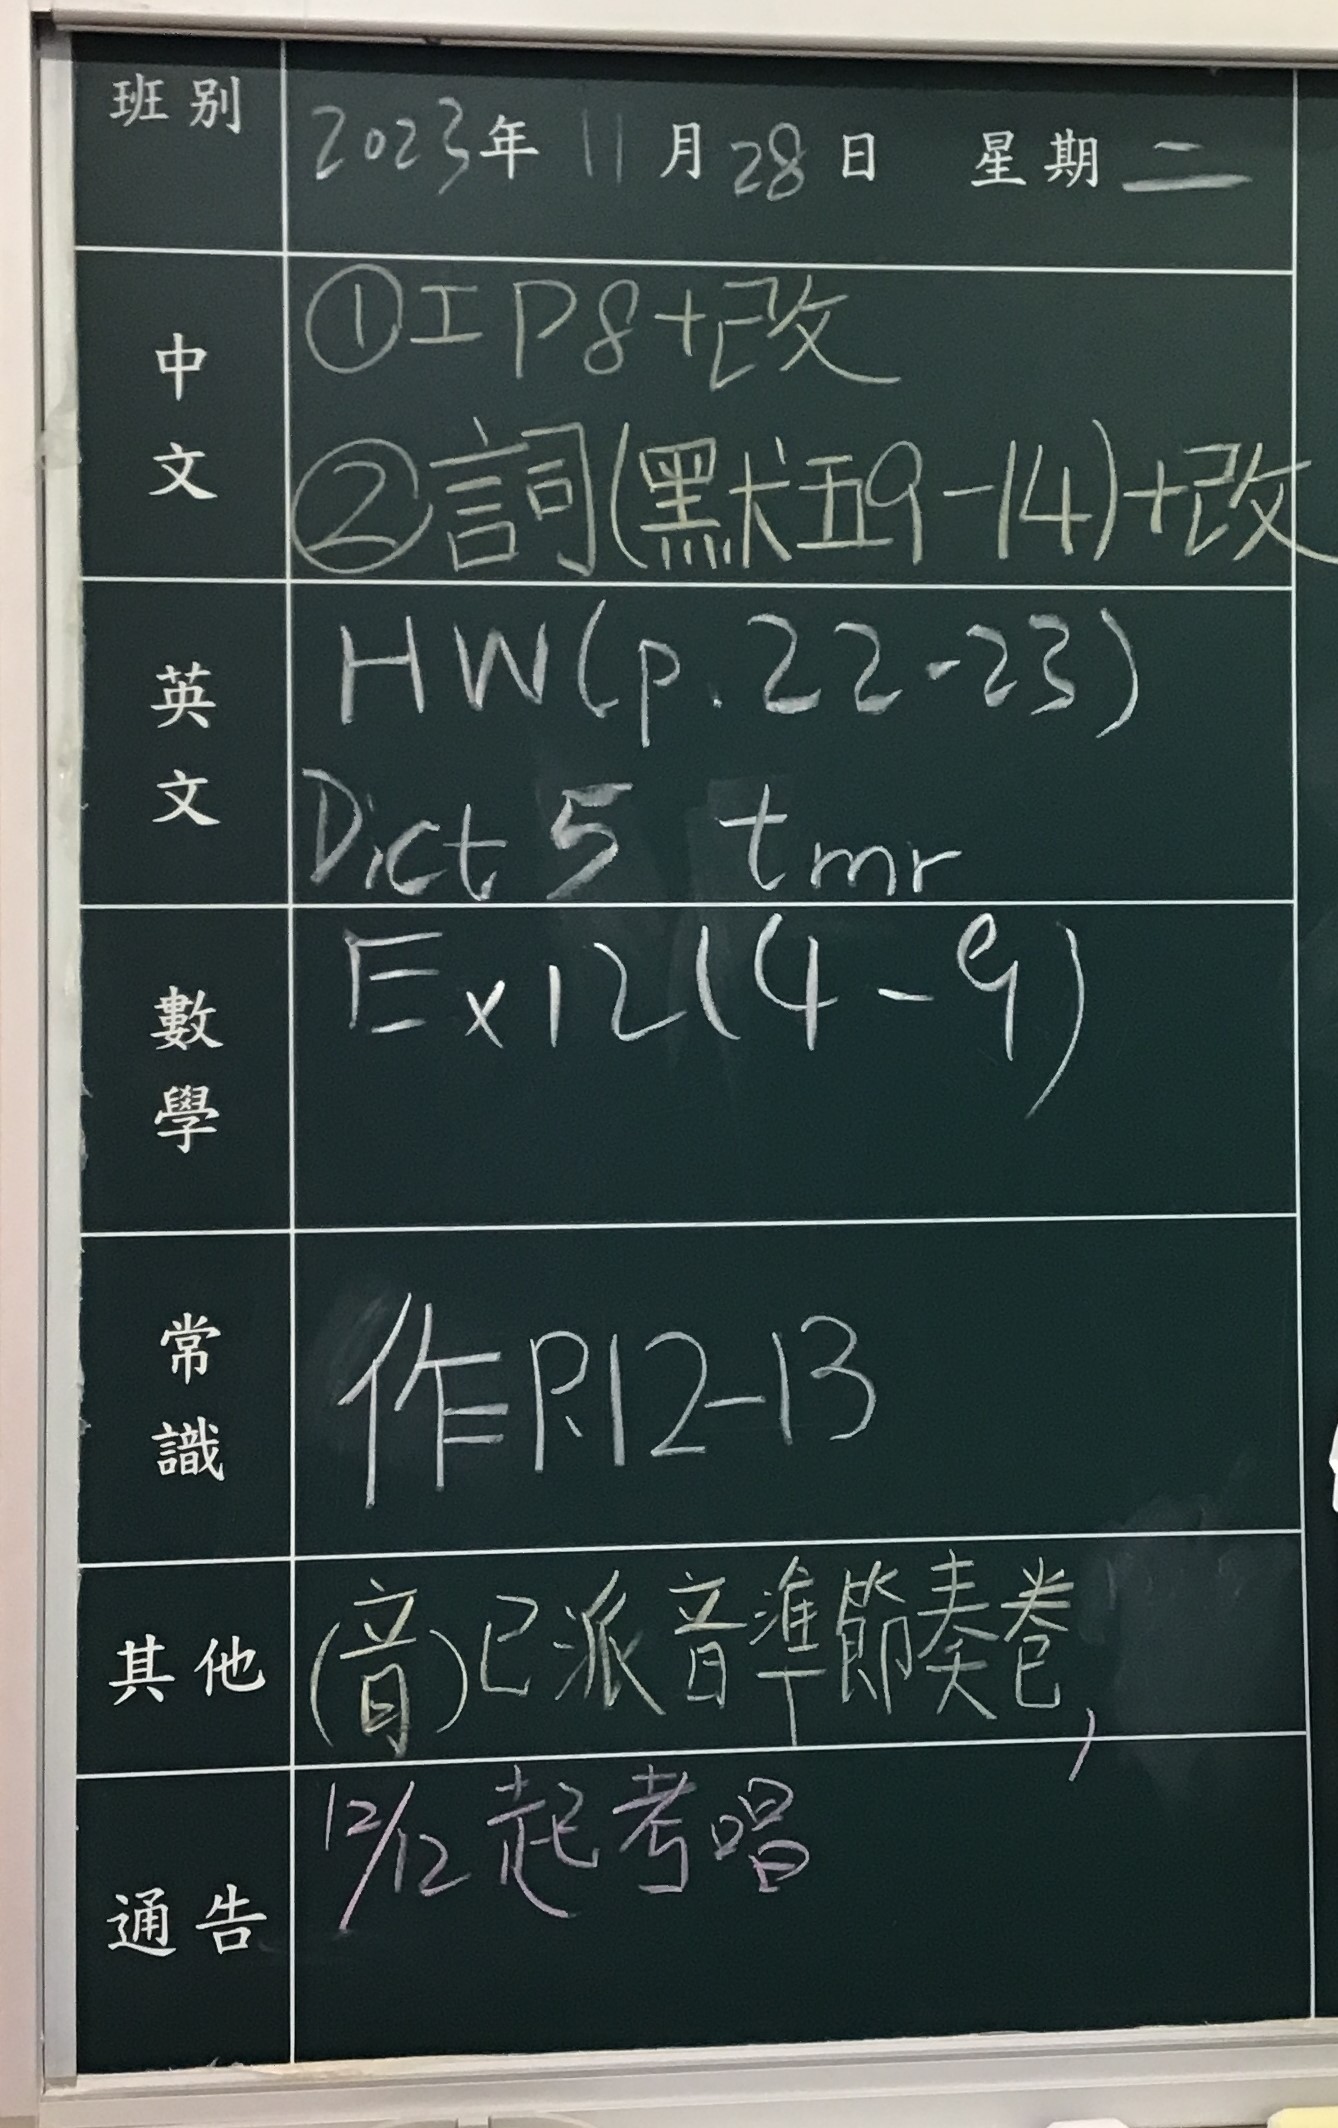 班別
2023年 11月28日 星期二
中文
①工P8+改
②詞(默五9-14)+改
英文
HW(p.22-23)
Dict 5 tmr
數學
Ex12(4-9)
常識
作P.12-13
其他
(音)已派音準節奏卷,
通告
12/12起考唱